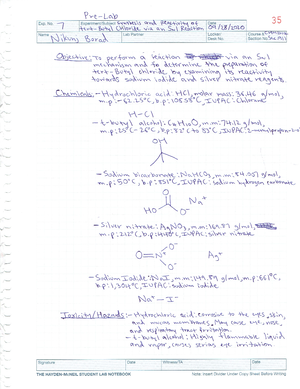 Pre-Lab
35
Exp. No. 7 Experiment/Subject Synthesis and Reactivity of
tert-Butyl Chloride via an SN1 Reaction
Date
Name Nikunj Borad Lab Partner Locker/
Desk No. Course &
Section No.
Objective: To perform a reaction via an SN1
mechanism and to determine the preparation of
tert-Butyl chloride by examining its reactivity
towards sodium iodide and silver nitrate reagents.
Chemicals: - Hydrochloric acid: HCl, molar mass: 36.46 g/mol,
IUPAC: Chlorane
H-Cl
- t-butyl alcohol: C4H10O, m.m: 74.12 g/mol,
m.p: 25°C-26°C, b.p: 82°C to 83°C, IUPAC:
OH
- Sodium bicarbonate: NaHCO3, m.m:
m.p: 50°C, b.p: 851°C, IUPAC: sodium hydrogen carbonate
O
HO O- Na+
- Silver nitrate: AgNO3, m.m: 169.87 g/mol,
m.p: 212°C, IUPAC: silver nitrate
O-
O=N+ Ag+
O-
- Sodium Iodide: NaI, m.m: 149.89 g/mol, m.p: 661°C,
b.p: 1,304°C, IUPAC: sodium iodide
Na+ - I-
Toxicity/Hazards: - Hydrochloric acid: corrosive to the eyes, skin,
and mucous membranes. May cause eye, nose,
and respiratory tract irritation.
- t-butyl alcohol: Highly flammable liquid
and vapor, causes serious eye irritation
Signature Date Witness/TA Date
THE HAYDEN-McNEIL STUDENT LAB NOTEBOOK Note: Insert Divider Under Copy Sheet Before Writing